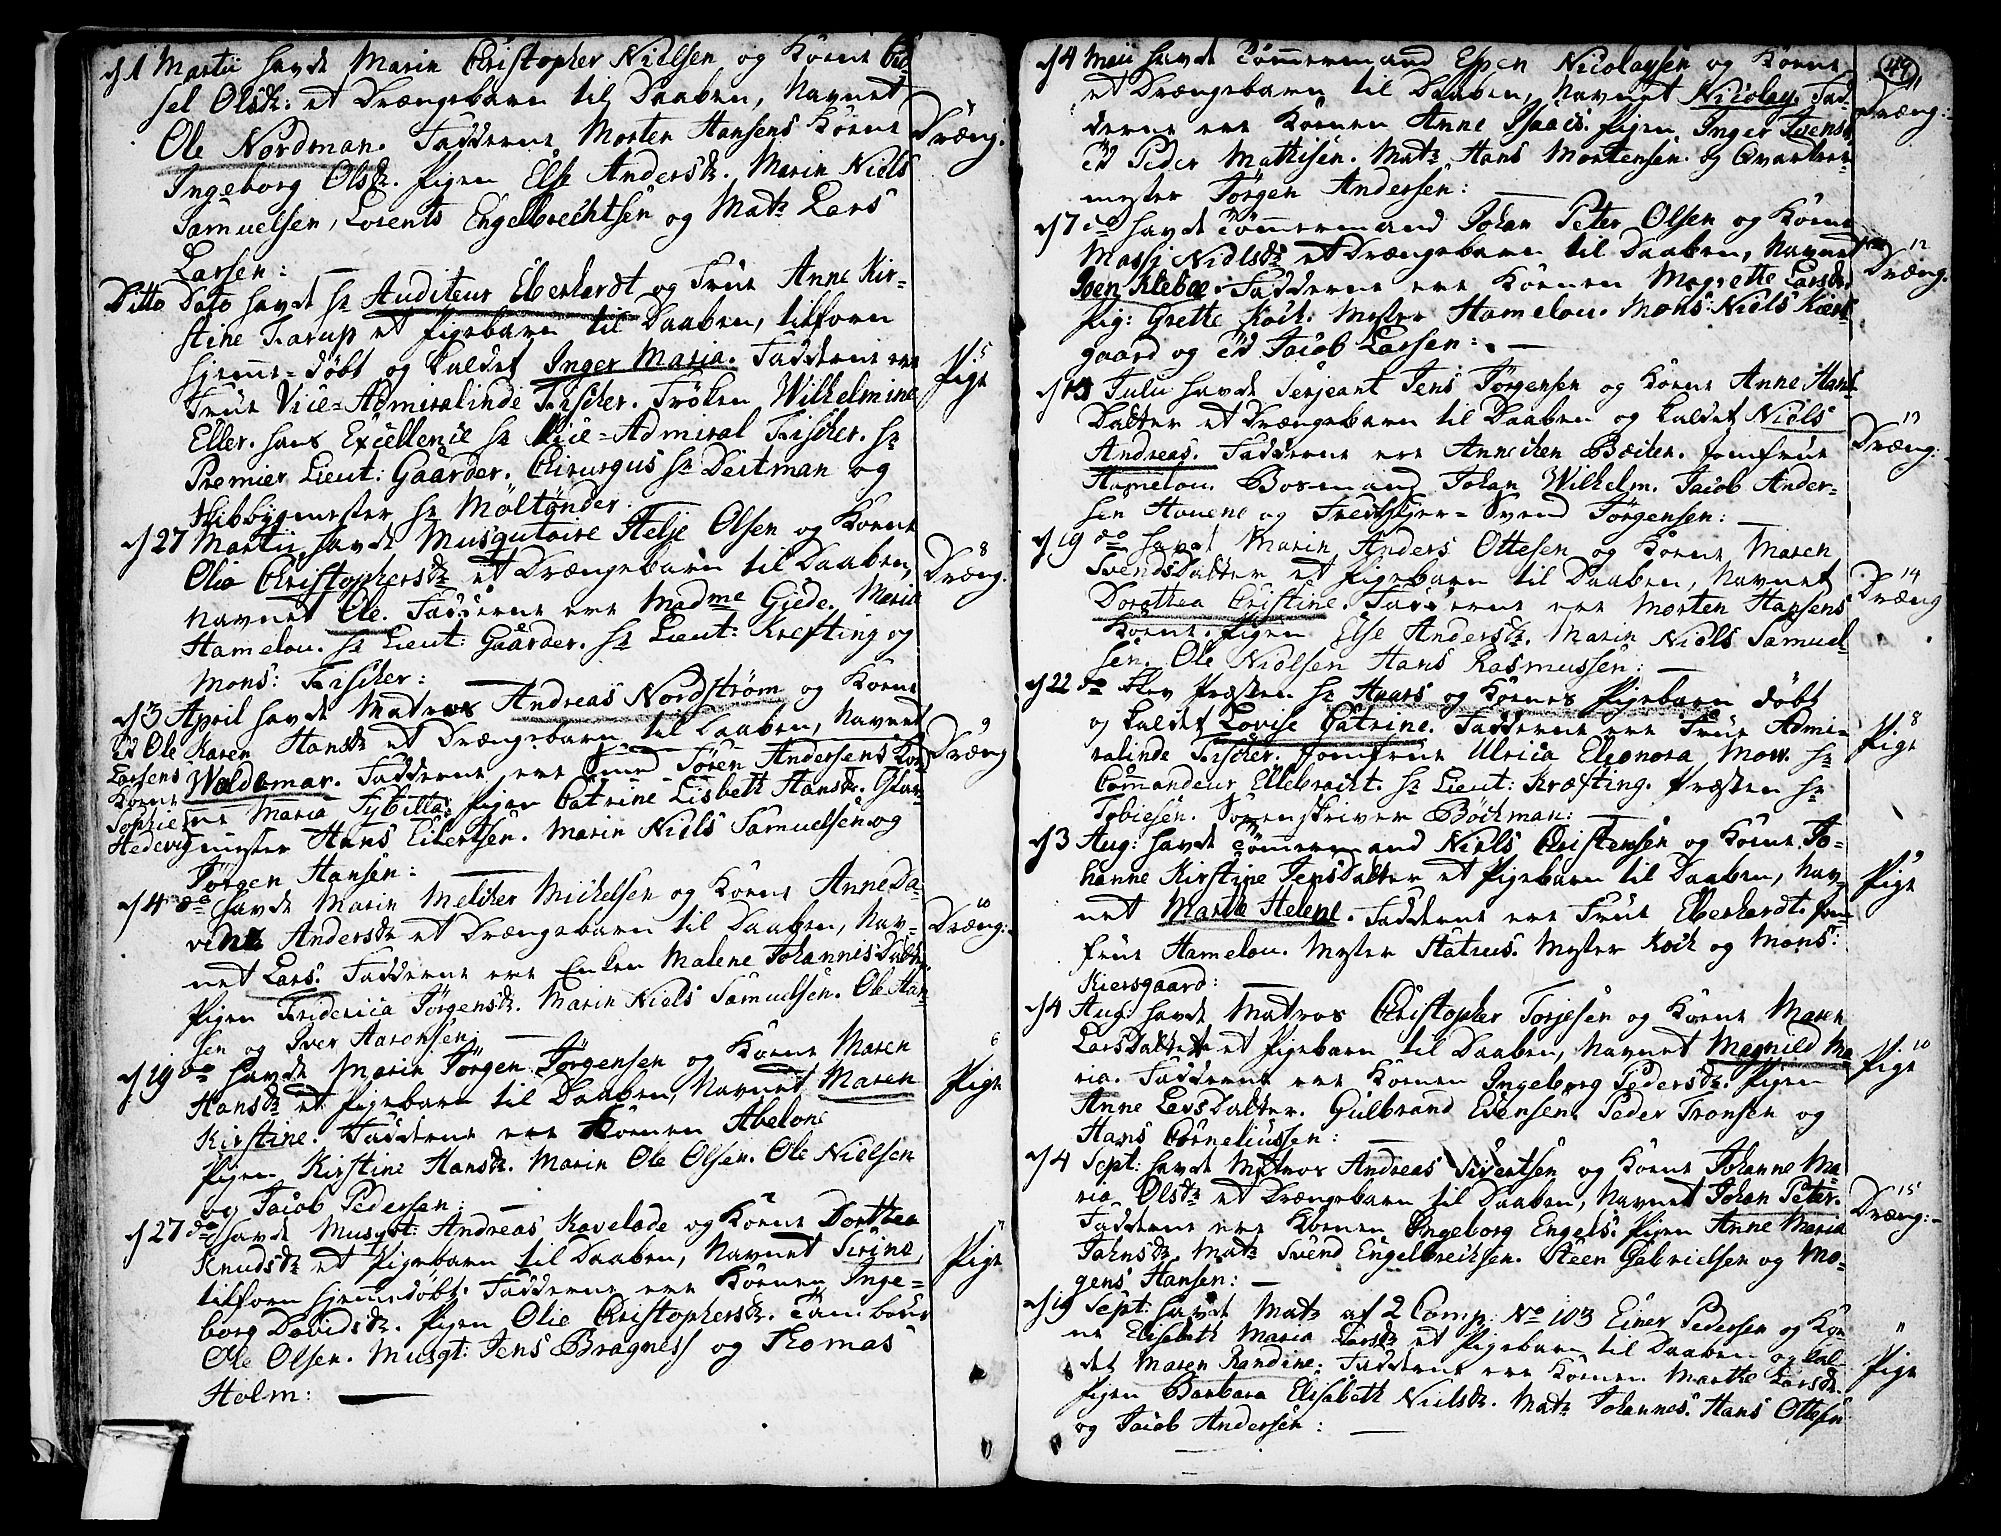 d/1 Martii havde Marin Christopher Nielsen og Kone Cis
sel Olsdr: et Drængebarn til Daaben, Navnet
Ole Nordman. Fadderne Morten Hansens Kone
7 Dræng:
Ingeborg Olsdr. Pigen Else Andersdr. Marin Niels
Samuelsen, Lorents Engelbrechtsen og Matr Lars
Larsen:
Ditto Dato havde Hr Auditeur Eberhardt og Frue Anne Kir-
stine Tarup et Pigebarn til Daaben, tilforn
hjemme-döbt og kaldet Inger Maria. Fadderne ere
5 Pige
Frue Vice-Admiralinde Fischer. Fröken Wilhelmine
Eller. hans Excellence Hr Vice-Admiral Fischer. Hr
Premier Lieut: Gaarder. Chirurgus Hr Deitman og
Skibbygmester Hr Möltönder
d/27 Martii havde Musquetaire Helje Olsen og Kone
Olia Christophersdr et Drængebarn til Daaben,
8 Dræng:
Navnet Ole. Fadderne ere Madme Giede. Maria
Hamelou. Hr Lieut: Gaarder. Hr Lieut: Krefting og
Mons: Fischer:
d/3 April havde Matros Andreas Nordström og Kone
Karen Hansdr et Drængebarn til Daaben, Navnet
9 Dræng
Woldemar. Fadderne ere Smed Sören Andersens Ko-
ne Maria Sybilla. Pigen Catrine Lisbeth Hansdr.
Ole Larsens Kone Sophie Hedevig
mester Hans Eilertsen. Marin Niels Samuelsen og
Jörgen Hansen:
d/4 do havde Marin Melcher Michelsen og Kone Anne Da-
vids Andersdr et Drængebarn til Daaben, Nav-
10 Dræng:
net Lars. Fadderne ere Enken Malene Johannisdatter
Pigen Fridericia Jörgensdr. Marin Niels Samuelsen. Ole Han-
sen og Iver Aaronsen
d/19 do havde Marin Jörgen Jörgensen og Kone Maren
6 Pige
Hansdr et Pigebarn til Daaben, Navnet Maren
Kirstine. Fadderne ere Konen Abelone
Pigen Kirstine Hansdr. Marin Ole Olsen. Ole Nielsen
og Jacob Pedersen:
d/27 do havde Musqt: Andreas Kavelade og Kone Dorthea
Knudsdr et Pigebarn til Daaben, Navnet Sirine,
7 Pige
tilforn hjemmedöbt. Fadderne ere Konen Inge-
borg Davidsdr. Pigen Olie Christophersdr. Tambour
Ole Olsen. Musqt: Jens Bragness og Thomas
Holm:
49
d/4 Maii havde Tömmermand Espen Nicolaysen og Kone
et Drængebarn til Daaben, Navnet Nicolay. Fad-
11 Dræng:
derne ere Konen Anne Isaacs. Pigen Inger Jensdr
Peder Mathisen. Matr Hans Mortensen. og Qvarteer-
mester Jörgen Andersen:
d/7 do havde Tömmermand Johan Peter Olsen og Kone
Massi Nielsdr et Drængebarn til Daaben, Navnet
12 Dræng.
Iven Klebœ. Fadderne ere Konen Magrette Larsdr.
Pig: Grette Koch. Mester Hamelou. Mons: Niels Kiers-
gaard og Jacob Larsen:
d/13 Julii havde Serjeant Jens Jörgensen og Kone Anne Hans
Datter et Drængebarn til Daaben og kaldet Niels
13 Dræng:
Andreas. Fadderne ere Annichen Bœcher. Jomfrue
Hamelou. Bosmand Johan Wilhelm. Jacob Ander-
sen Hovene og Svend Jörgensen:
d/19 do havde Marin Anders Ottesen og Kone Maren
Svendsdatter et Pigebarn til Daaben, Navnet
14 Dræng
Dorothea Cristine. Fadderne ere Morten Hansens
Kone. Pigen Else Andersdr. Marin Niels Samuel-
sen. Ole Nielsen Hans Rasmussen:
d/22 do blev Præsten Hr Haars og Kones Pigebarn döbt
og kaldet Lovise Catrine. Fadderne ere Frue Admi-
8 Pige
ralinde Fischer. Jomfrue Ulrica Eleonora Mow. Hr
Commandeur Ellebracht. Hr Lieut: Kræfting. Præsten Hr
Tobiesen. Sorenskriver Böchman:
d/3 Aug: havde Tömmermand Niels Christensen og Kone Jo-
hanne Kirstine Jensdatter et Pigebarn til Daaben, Nav-
9 Pige
net Marthe Helene. Fadderne ere Frue Eberhardt. Jom-
frue Hamelou. Mester Statius. Mester Koch og Mons:
Kiersgaard:
d/4 Aug: havde Matros Christopher Torjesen og Kone Maren
Larsdatter et Pigebarn til Daaben, Navnet Magnild Ma-
10 Pige
ria. Fadderne ere Konen Ingeborg Pedersdr. Pigen
Anne Larsdatter. Gulbrand Evensen. Peder Tronsen og
Hans Corneliussen:
d/4 Sept: havde Matros Andreas Sivertsen og Kone Johanne Ma-
ria Olsdr et Drængebarn til Daaben, Navnet Johan Peter.
15 Dræng:
Fadderne ere Konen Ingeborg Engels. Pigen Anne Maria
Jahnsdr. Matr Svend Engelbrechsen. Steen Gabrielsen og Mo-
gens Hansen:
d/19 Sept: havde Matr af 2 Comp: No 103 Einer Pedersen og Ko-
ne Elisabeth Maria Larsdr et Pigebarn til Daaben og kal-
11 Pige
det Maren Randine. Fadderne ere Konen Marthe Larsdr.
Pigen Barbara Elisabeth Nielsdr. Matr Johannes. Hans Ottesen
og Jacob Andersen: